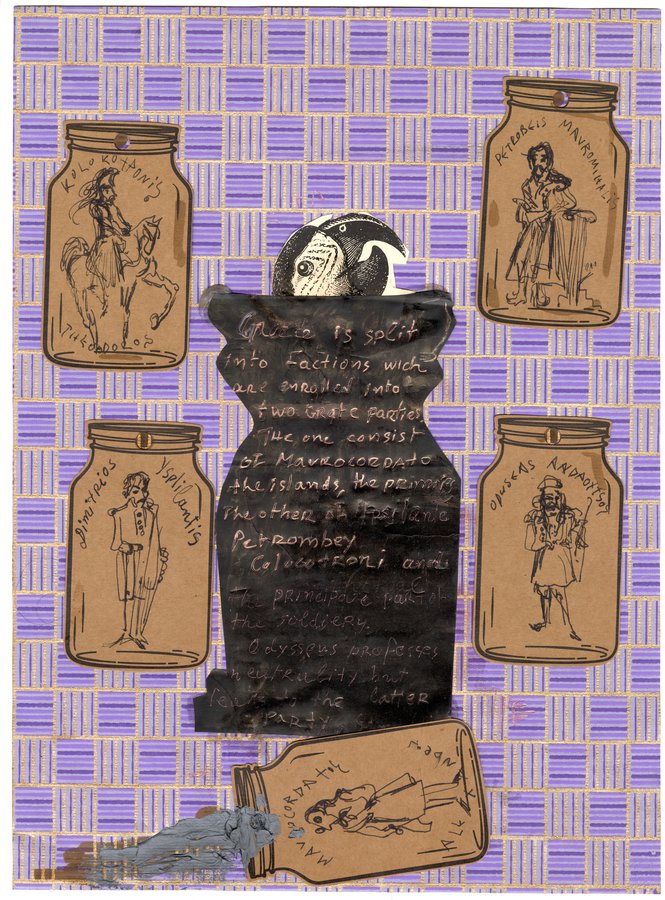 KOLOKOTRONIS
THEODOROS
PETROBEIS MAVROMIHALIS
Greece is split
into Factions wich
are enrolled into
two Grate parties
The one consist
OF MAVROCORDATO
the islands, the primates
The other of Ipsilante
Petrombey
Colocotroni and
The principave part of
the soldiery.
Odysseus professes
neutrality but
the latter
Party
Dimitrios Yspilantis
ODYSEAS ANDROUTSOS
MAVROCORDATOS